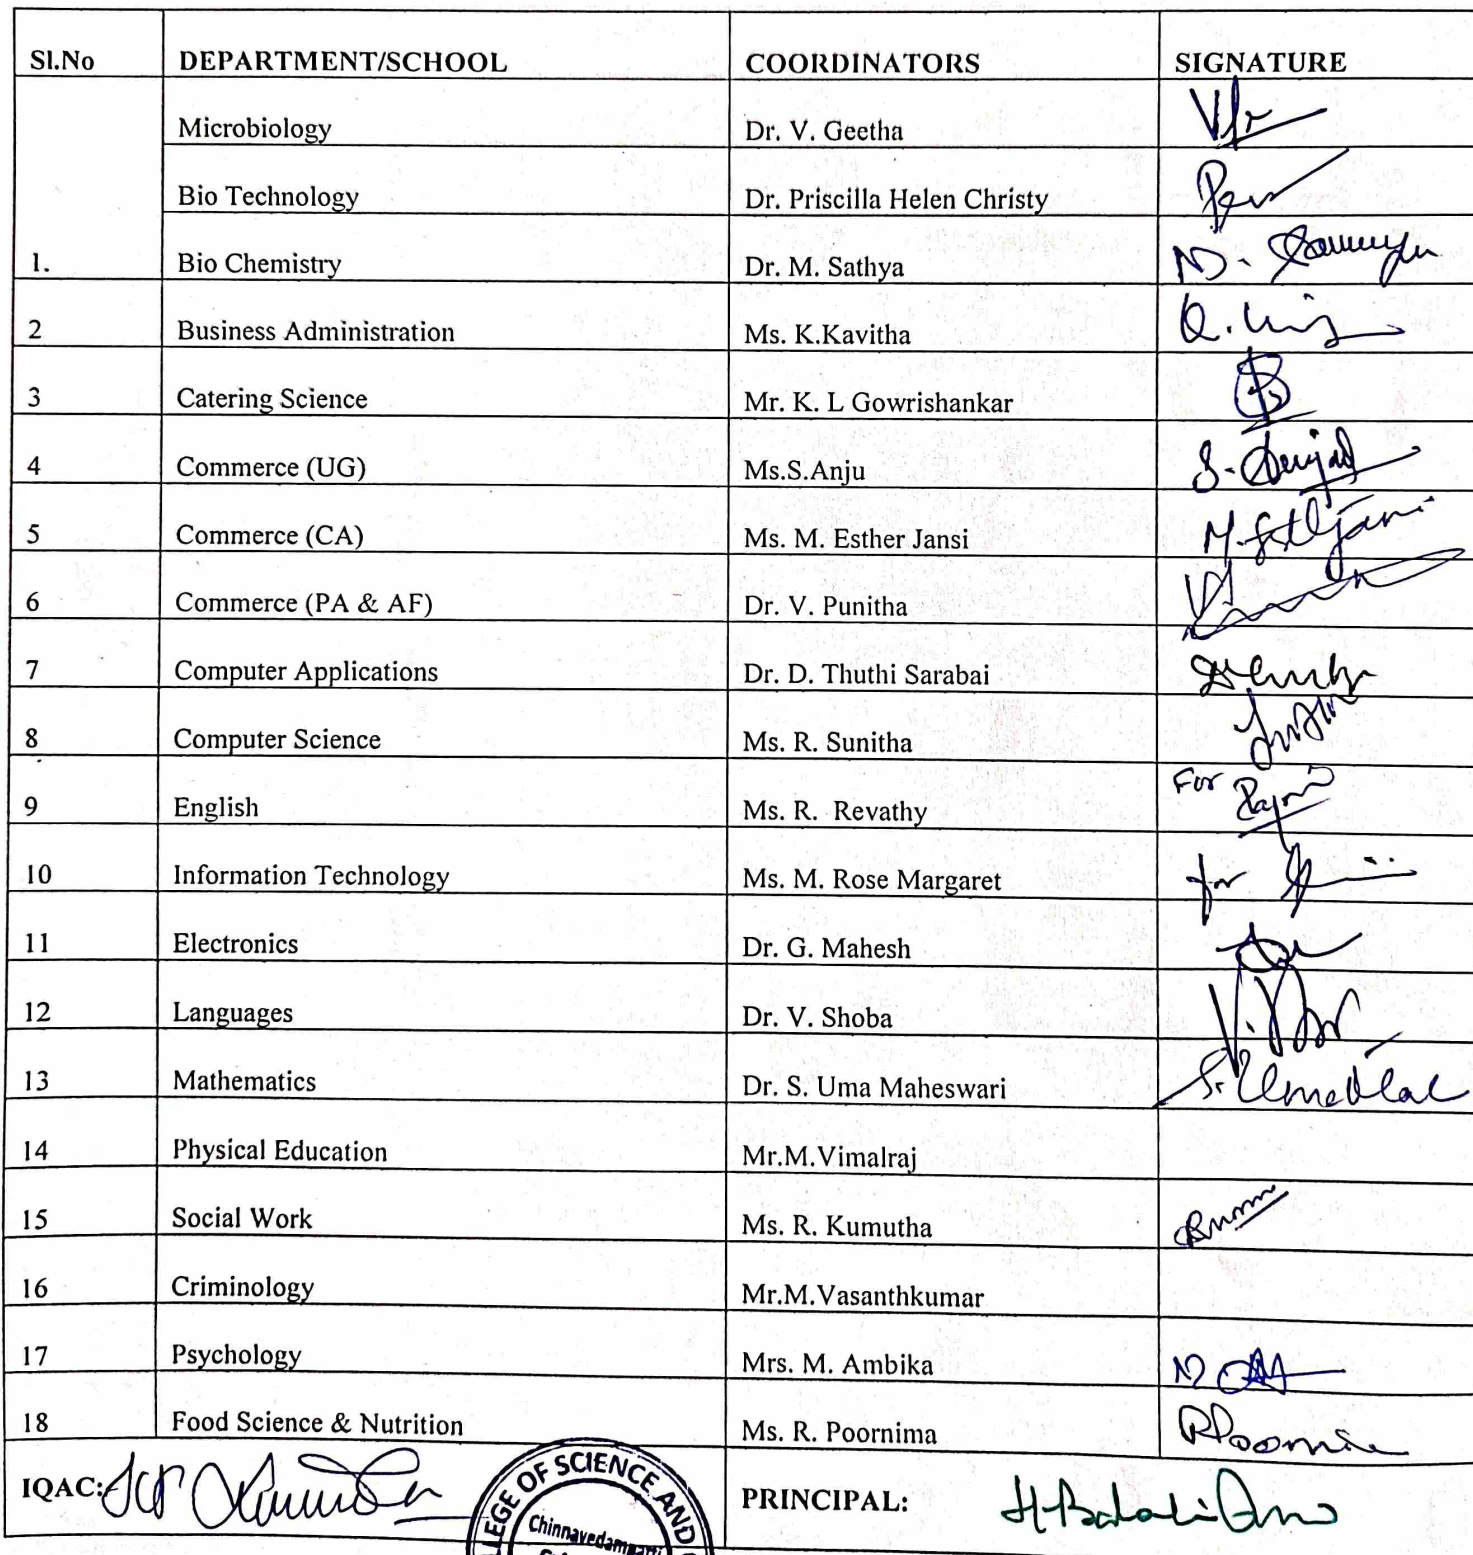 Sl.No DEPARTMENT/SCHOOL COORDINATORS SIGNATURE
Microbiology Dr. V. Geetha
Bio Technology Dr. Priscilla Helen Christy
1. Bio Chemistry Dr. M. Sathya
2 Business Administration Ms. K.Kavitha
3 Catering Science Mr. K. L Gowrishankar
4 Commerce (UG) Ms.S.Anju
5 Commerce (CA) Ms. M. Esther Jansi
6 Commerce (PA & AF) Dr. V. Punitha
7 Computer Applications Dr. D. Thuthi Sarabai
8 Computer Science Ms. R. Sunitha
9 English Ms. R. Revathy For
10 Information Technology Ms. M. Rose Margaret for
11 Electronics Dr. G. Mahesh
12 Languages Dr. V. Shoba
13 Mathematics Dr. S. Uma Maheswari
14 Physical Education Mr.M.Vimalraj
15 Social Work Ms. R. Kumutha
16 Criminology Mr.M.Vasanthkumar
17 Psychology Mrs. M. Ambika
18 Food Science & Nutrition Ms. R. Poornima RPoornima
IQAC: PRINCIPAL:
OF SCIENCE AND